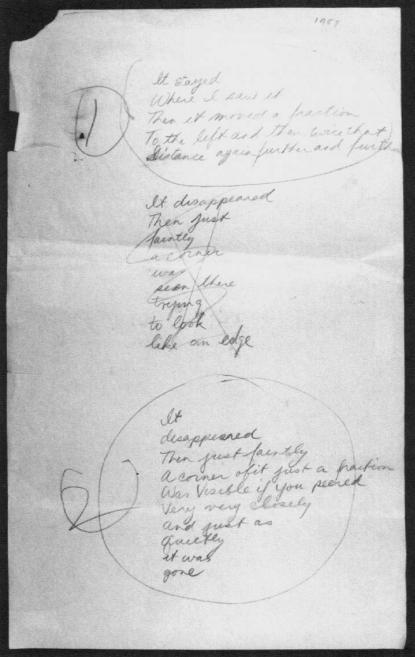 1957
1
It stayed
Where I saw it
Then it moved a fraction
To the left and then twice that
Distance again further and further
It disappeared
Then just
faintly
a corner
was
seen there
trying
to look
like an edge
2
It
disappeared
Then just faintly
A corner of it just a fraction
Was Visible if you peered
Very very closely
and just as
Quietly
it was
gone